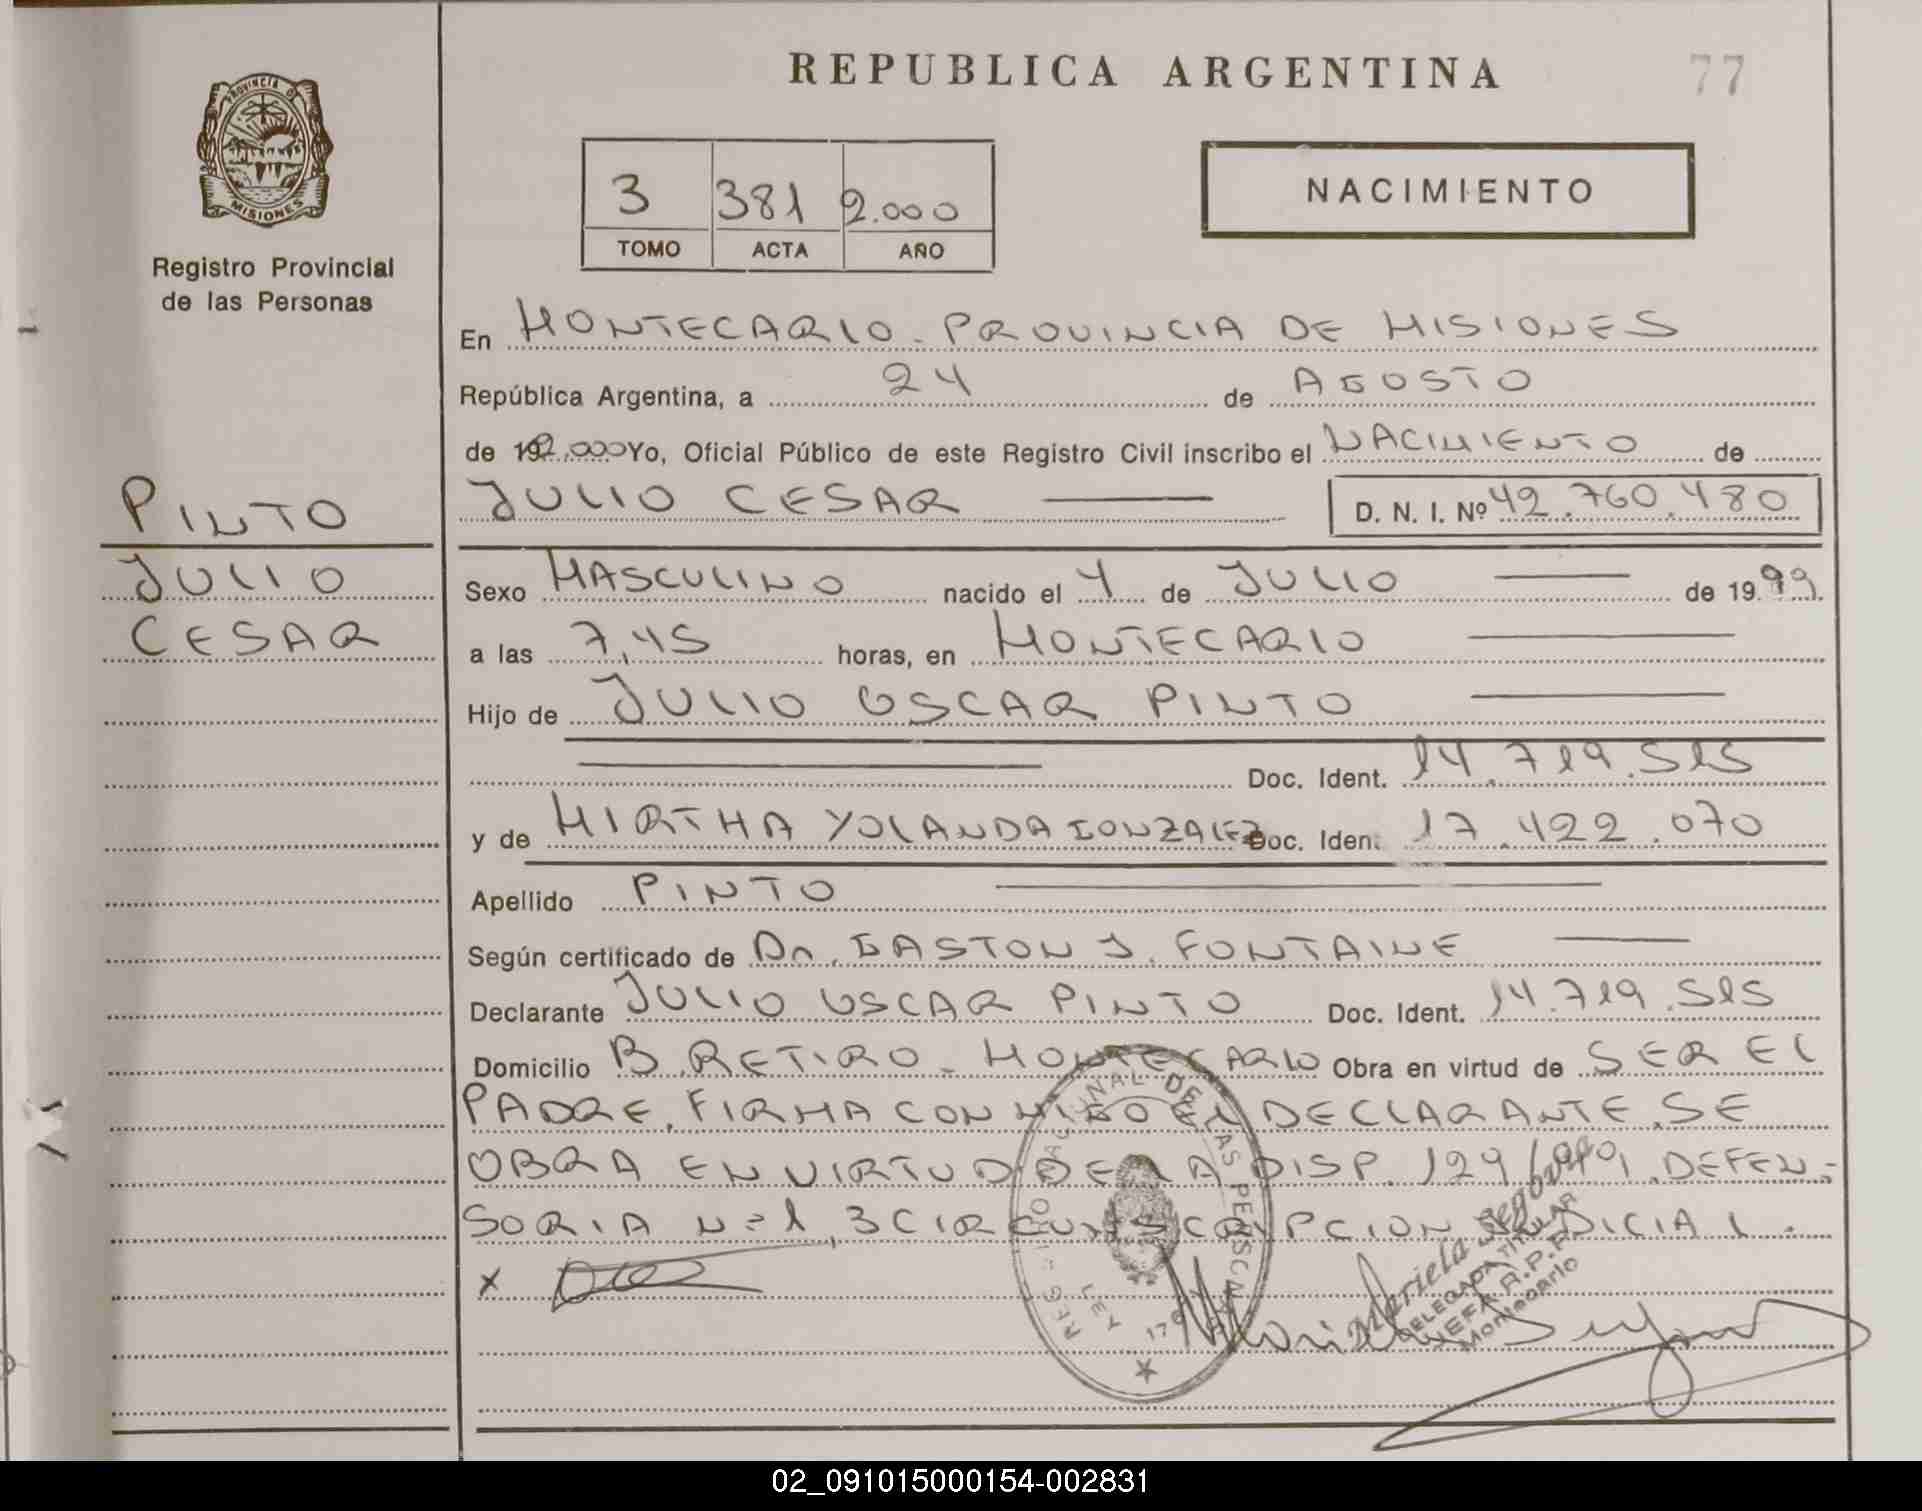 REPUBLICA ARGENTINA
77
PROVINCIA DE
MISIONES
Registro Provincial
de las Personas
3 381 2.000
TOMO ACTA AÑO
NACIMIENTO
En MONTECARLO - PROVINCIA DE MISIONES
República Argentina, a 24 de AGOSTO
de 192.000 Yo, Oficial Público de este Registro Civil inscribo el NACIMIENTO de
JULIO CESAR D. N. I. Nº 42.760.480
PINTO
JULIO
CESAR
Sexo MASCULINO nacido el 4 de JULIO de 1999
a las 7,45 horas, en MONTECARLO
Hijo de JULIO OSCAR PINTO
Doc. Ident. 14.719.515
y de MIRTHA YOLANDA GONZALEZ Doc. Iden. 17.422.070
Apellido PINTO
Según certificado de Dr. GASTON J. FONTAINE
Declarante JULIO OSCAR PINTO Doc. Ident. 14.719.515
Domicilio B. RETIRO - MONTECARLO Obra en virtud de SER EL
PADRE. FIRMA CONMIGO EL DECLARANTE. SE
OBRA EN VIRTUD DE LA DISP. 129/ DEFEN-
SORIA N=1, 3 CIRCUNSCRIPCION JUDICIAL.
x
DE LAS PERSONAS
LEY
Mariela Segovia
DELEGADA TITULAR
JEFA R.P.P.
Montecarlo
02_091015000154-002831